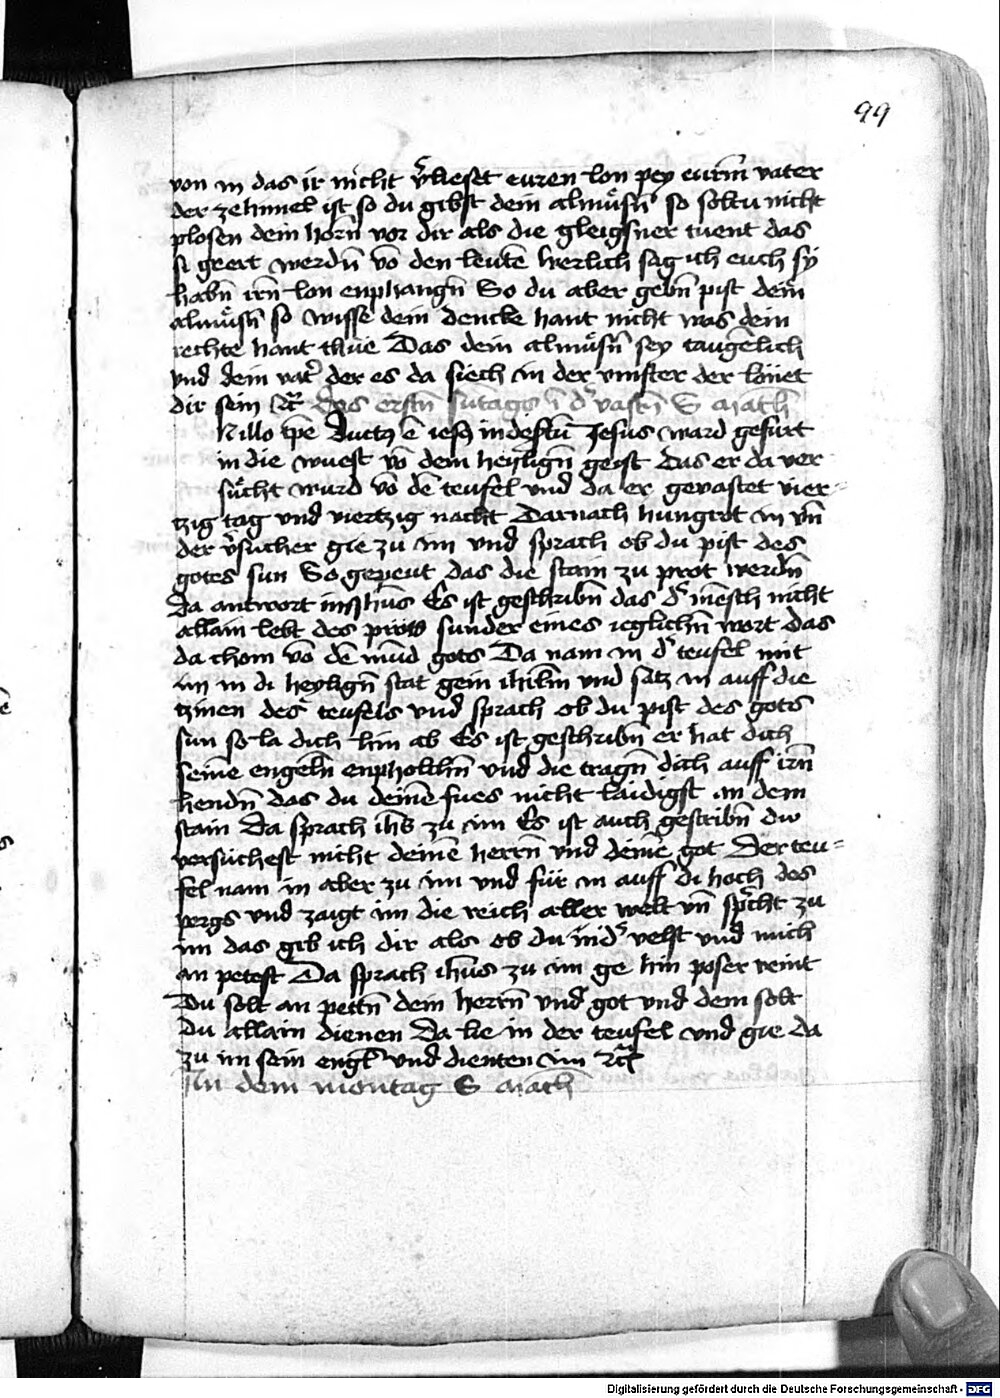 99
von in das ir nicht v̄lieset euren lon pey eurm̄ vater
der ze himel ist so du gibst dein almüsn̄ so soltu nicht
plosen dein horn̄ vor dir als die gleigsner tuent das
si geert werdn̄ vō den leutē herlich sag ich euch sy
habn̄ irn̄ lon enphangn̄ So du aber gebn̄ pist dein
almüsn̄ so wisse dein dencke hant nicht was dein
rechte hant thue Das dein almüsn̄ sey taugēlich
vnd dein vat̄ der es da siech in der vinster der lönet
dir sein Des erstn̄ sūtags ī d͛ vastn̄ S Math̄
Nillo tp̄e Ductꝰ ē iesꝰ in desertū Jesus ward gefurt
in die wuest vō dem heylign̄ geist das er da ver
sücht wurd vō dē teufel vnd da er gevastet vier=
tzig tag vnd viertzig nacht Darnach hungrot in vn̄
der v̄sucher gie zu im vnd sprach ob du pist des
gotes sun So gepeut das die stain zu prot werdn̄
Da antwort in Jhūs Es ist geschribn̄ das d͛ mēsch nicht
allain lebt des prots sunder eines iglichn̄ wort das
da chom vō dē mūd gots Da nam in d͛ teufel mit
im in di heyligñ stat gein ihrlm̄ vnd satz in auff die
tzinen des teufels vnd sprach ob du pist des gots
sun so la dich hin ab Es ist geschribn̄ er hat dich
seinē engeln̄ enpholhn̄ vnd die tragn̄ dich auff irn̄
hendn̄ das du deinē fues nicht laidigst an dem
stain Da sprach ihūs zu im Es ist auch gescribn̄ du
versuchest nicht deinē herrn̄ vnd deinē got Der teu=
fel nam in aber zu im vnd für in auff di hoch des
pergs vnd zaigt im die reich aller welt vn̄ sprcht zu
im das gib ich dir als ob du nid͛ velst vnd mich
an petest Da sprach ihūs zu im ge hin poser veint
Du solt an pettn̄ dem herrn̄ vnd got vnd dem solt
du allain dienen Da lie in der teufel vnd gie da
zu im sein engl̄ vnd dienten im
An dem montag S Math̄
Digitalisierung gefördert durch die Deutsche Forschungsgemeinschaft - DFG